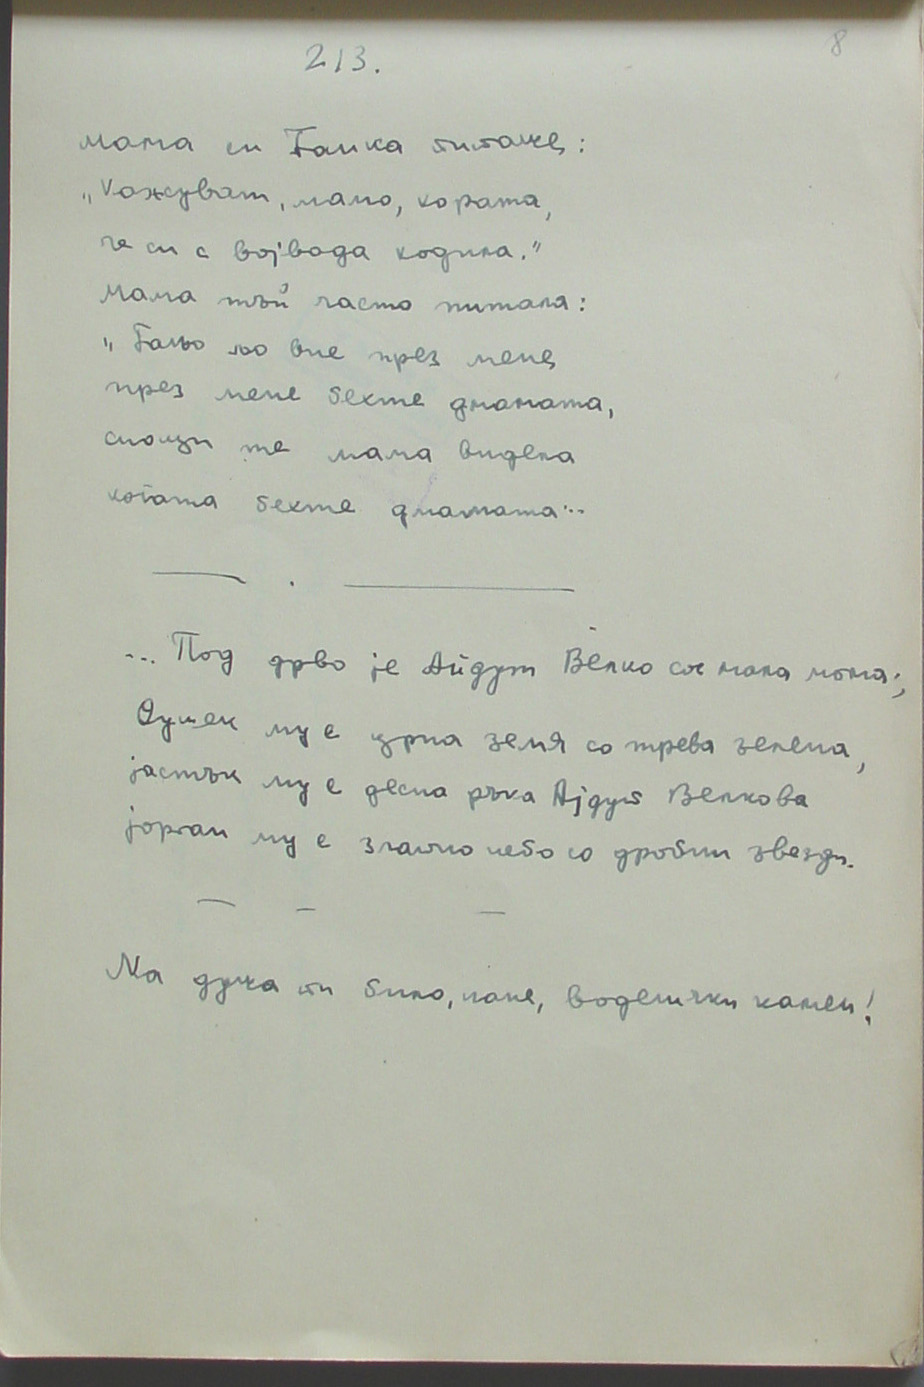 213.
8
мама си Ганка питаше:
„Кажуват, мамо, хората,
че си с војвода ходила."
Мама тъй часто питала:
„Гальо льо вие през мене
през мене бехте двамата,
снощи те мама видела
когата бехте двамата...
... Под дрво је Айдут Велко со мала мома;
Душек му е црна земя со трева зелена,
јастък му е десна ръка Ајдут Велкова
јорган му е злачно небо со дробни звезди.
На душа ти било, нане, воденички камен!